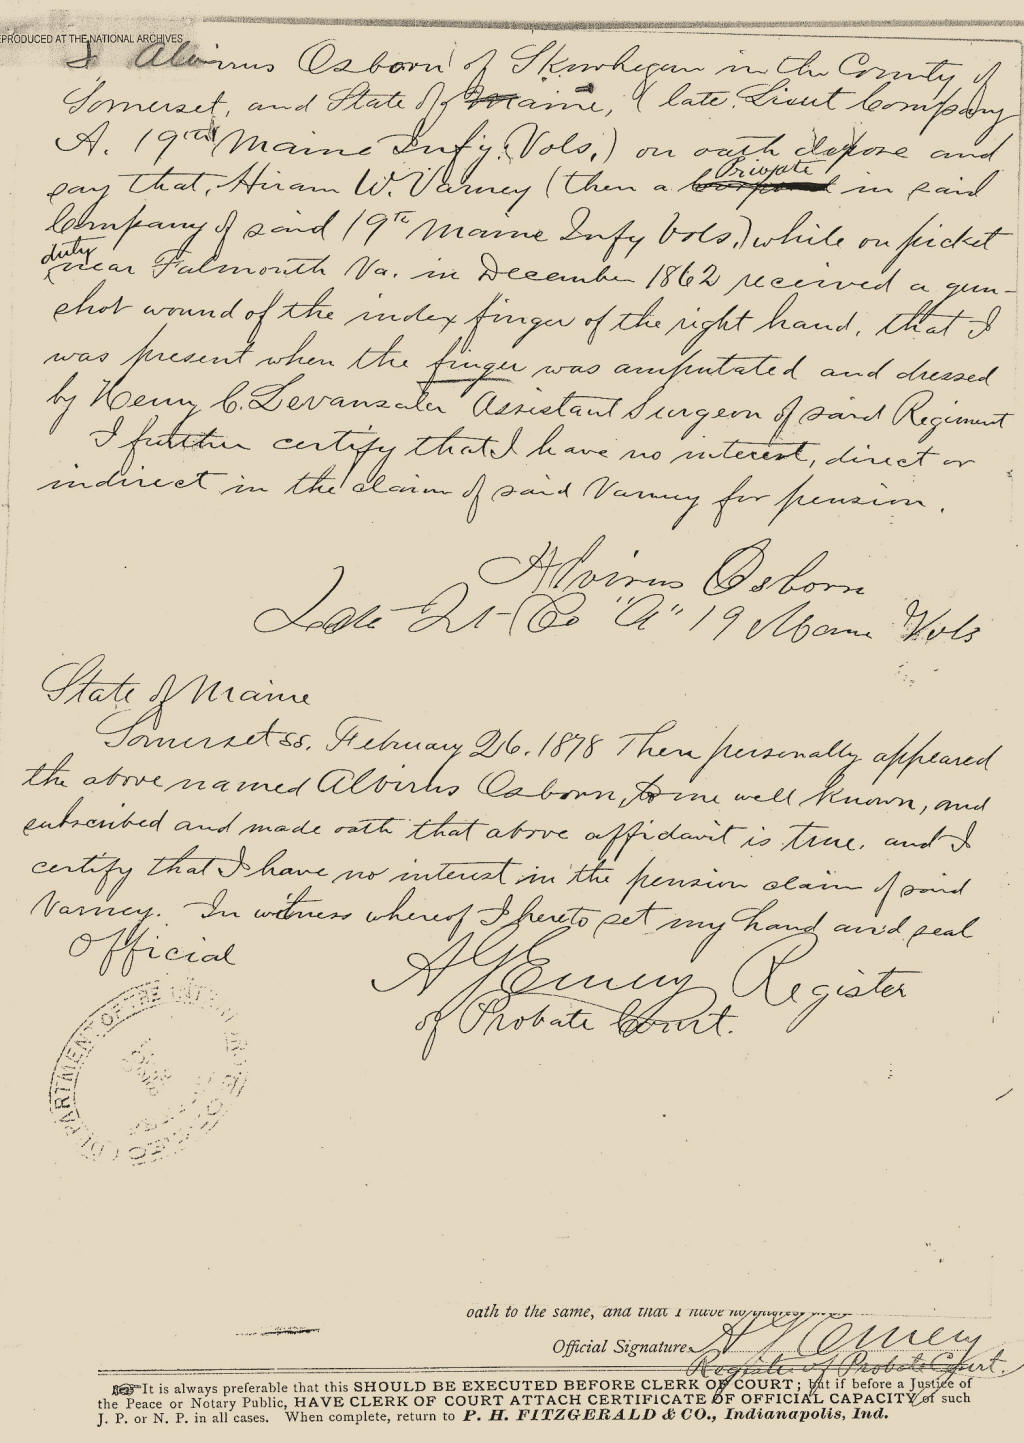 REPRODUCED AT THE NATIONAL ARCHIVES
I, Alvirus Osborn of Skowhegan in the County of
Somerset, and State of Maine, (late Lieut Company
A. 19th Maine Infy. Vols.) on oath depose and
say that, Hiram W. Varney (then a Private in said
Company of said 19th Maine Infy Vols.) while on picket
duty near Falmouth Va. in December 1862 received a gun-
shot wound of the index finger of the right hand, that I
was present when the finger was amputated and dressed
by Henry C. Levansaler Assistant Surgeon of said Regiment
I further certify that I have no interest, direct or
indirect in the claim of said Varney for pension.
Alvirus Osborn
Late Lt Co "A" 19 Maine Vols
State of Maine
Somerset ss. February 26. 1878 Then personally appeared
the above named Alvirus Osborn, to me well known, and
subscribed and made oath that above affidavit is true. and I
certify that I have no interest in the pension claim of said
Varney. In witness whereof I hereto set my hand and seal
Official
A G Emery Register
of Probate Court.
DEPARTMENT OF THE INTERIOR
oath to the same, and that I have no interest
Official Signature. A G Emery
Register of Probate Court.
It is always preferable that this SHOULD BE EXECUTED BEFORE CLERK OF COURT; but if before a Justice of
the Peace or Notary Public, HAVE CLERK OF COURT ATTACH CERTIFICATE OF OFFICIAL CAPACITY of such
J. P. or N. P. in all cases. When complete, return to P. H. FITZGERALD & CO., Indianapolis, Ind.